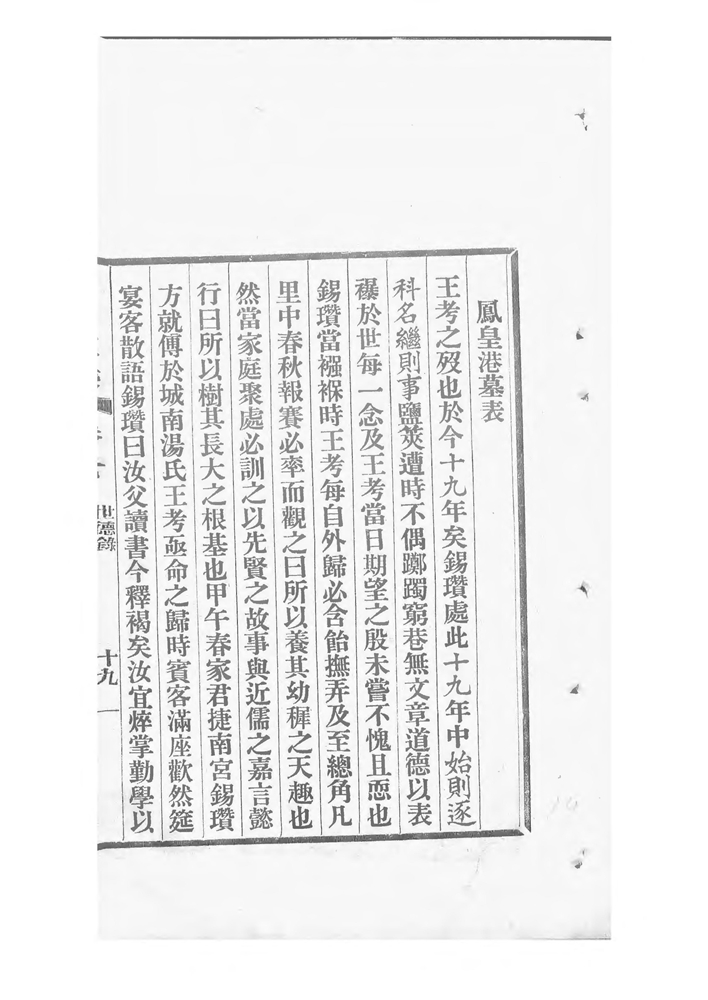 鳳皇港墓表
王考之歿也於今十九年矣錫瓚處此十九年中始則逐
科名繼則事鹽莢遭時不偶躑躅窮巷無文章道德以表
襮於世每一念及王考當日期望之殷未嘗不愧且恧也
錫瓚當襁褓時王考每自外歸必含飴撫弄及至總角凡
里中春秋報賽必率而觀之曰所以養其幼穉之天趣也
然當家庭聚處必訓之以先賢之故事與近儒之嘉言懿
行曰所以樹其長大之根基也甲午春家君捷南宮錫瓚
方就傅於城南湯氏王考亟命之歸時賓客滿座歡然筵
宴客散語錫瓚曰汝父讀書今釋褐矣汝宜焠掌勤學以
世德錄
十九